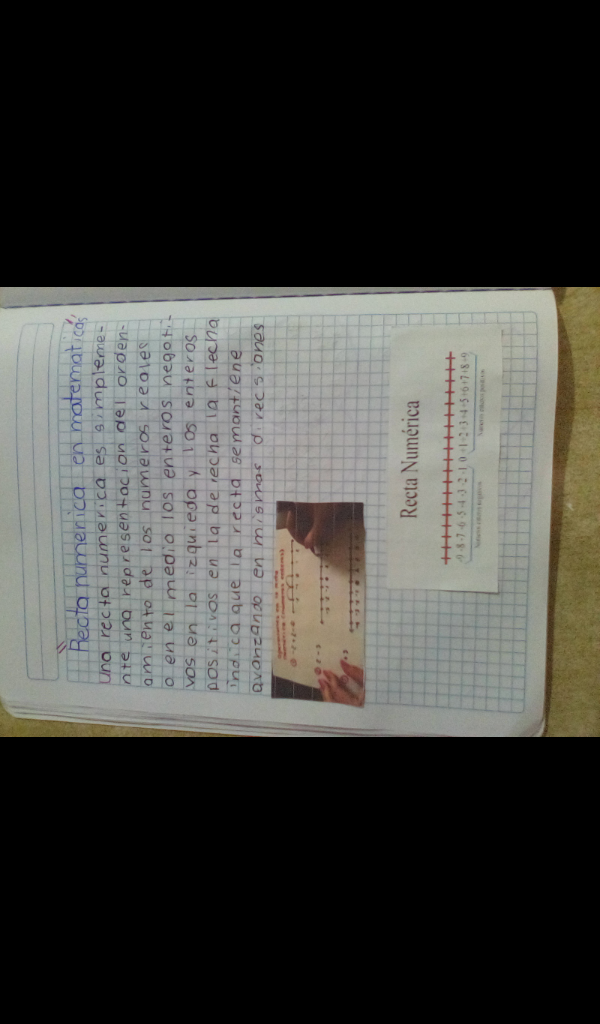 "Recta numerica en matematicas"
una recta numerica es simpleme-
nte una representacion del orden-
amiento de los numeros reales
o en el medio los enteros negati-
vos en la izquieda y los enteros
positivos en la derecha la flecha
indica que la recta semantiene
avanzando en mismas direcsiones
Recta Numérica
-9 -8 -7 -6 -5 -4 -3 -2 -1 0 +1 +2 +3 +4 +5 +6 +7 +8 +9
Números enteros negativos Números enteros positivos